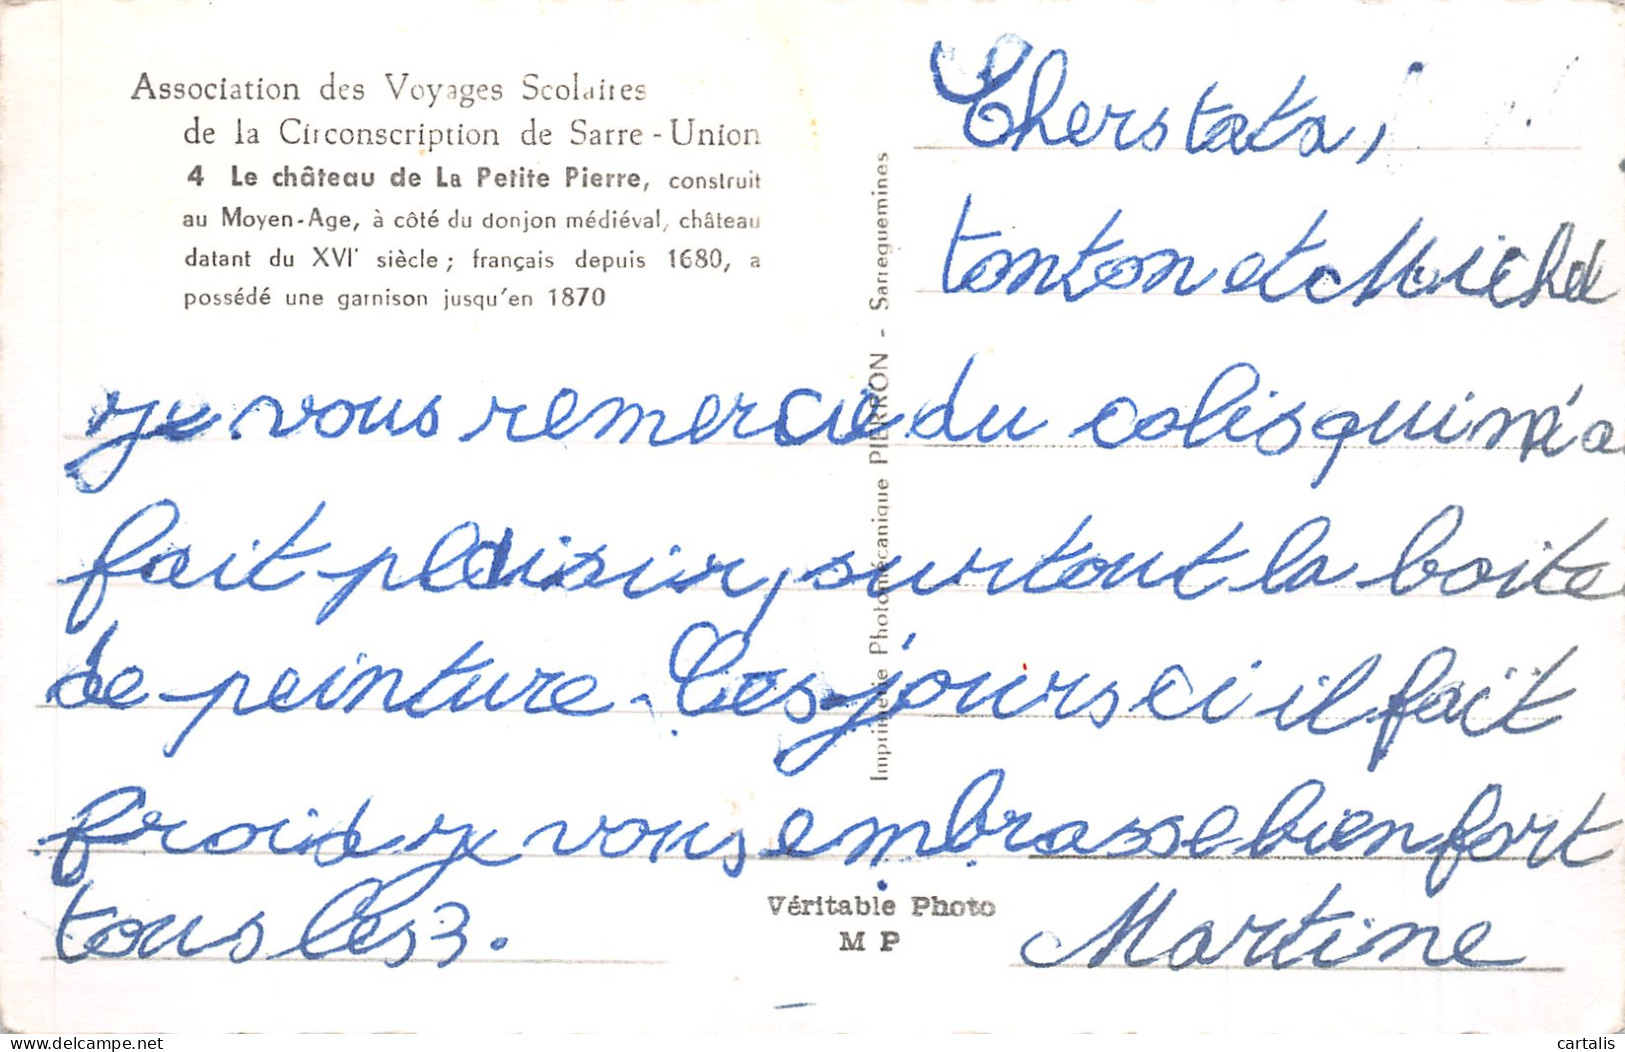 Association des Voyages Scolaires
de la Circonscription de Sarre-Union
4 Le château de La Petite Pierre, construit
au Moyen-Age, à côté du donjon médiéval, château
datant du XVIe siècle ; français depuis 1680, a
possédé une garnison jusqu'en 1870
Imprimerie Photomécanique PIERRON - Sarreguemines
Chers tata,
tonton et Michel
je vous remercie du colis qui m'a
fait plaisir, surtout la boite
de peinture. Ces jours ci il fait
froid je vous embrasse bien fort
tous les 3.
Martine
Véritable Photo
M P
delcampe.net
cartalis